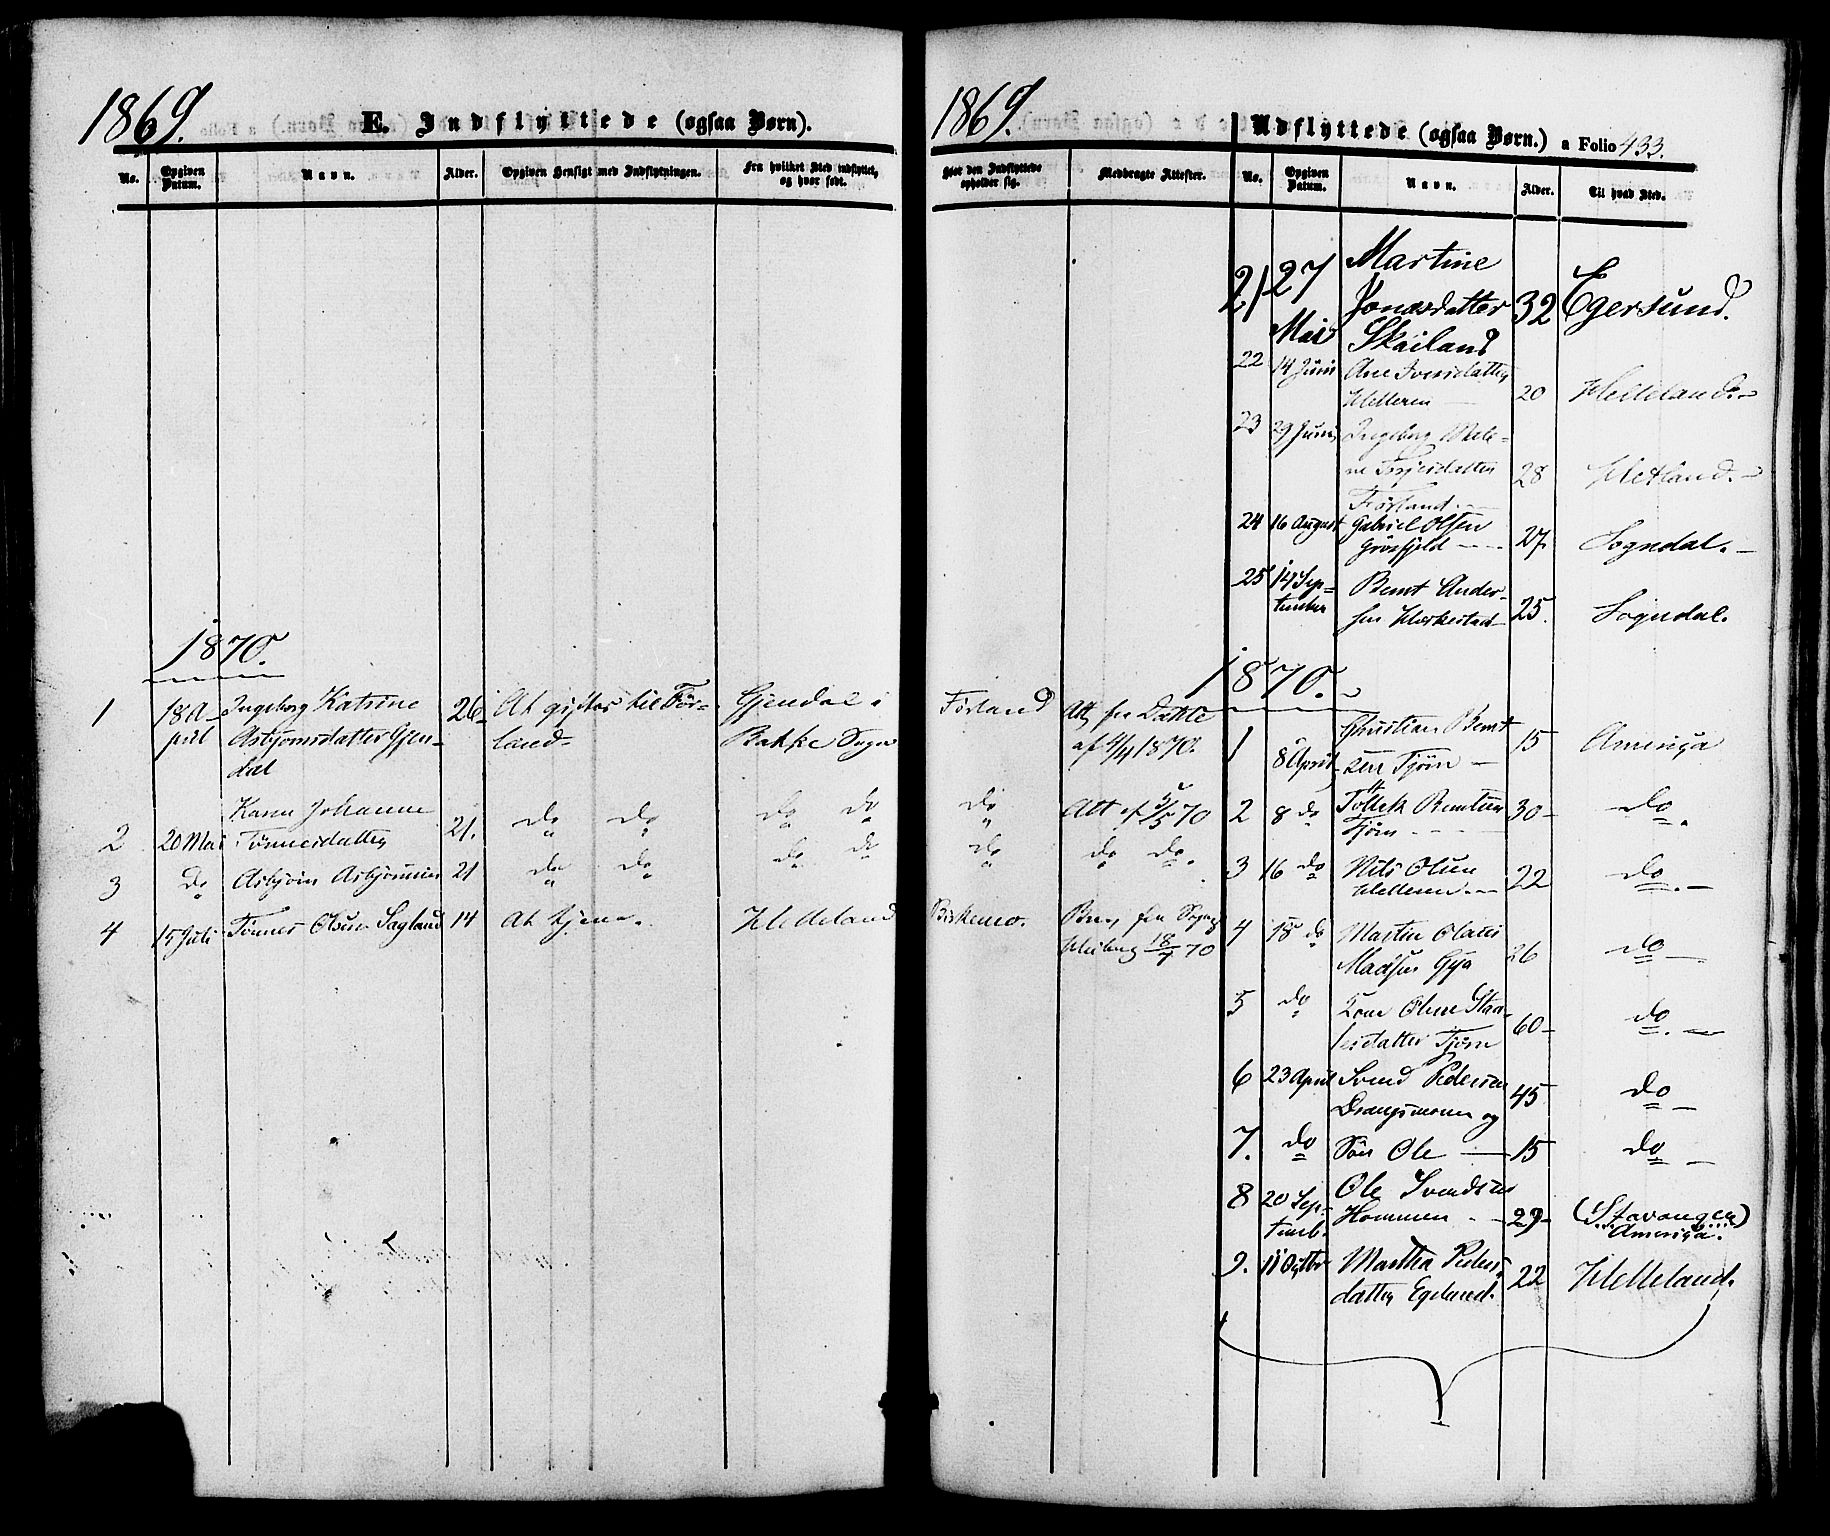 1869.
E. Indflyttede (ogsaa Børn).
No.
Opgiven Datum.
Navn.
Alder.
Opgiven Hensigt med Indflytningen.
Fra hvilket Sted indflyttet, og hvor født.
1870.
1 18 A- Ingeborg Katrine 26 At giftes til Før- Gjendal i
pril Asbjørnsdatter Gjen- land. Bakke Sogn
dal
Karen Johanne
2 20 Mai Tønnesdatter 21. do do do do
3 do Asbjørn Asbjørnsen 21 do do do do
4 15 Juli Tønnes Olsen Sagland 14 At tjene. Helleland
1869.
Udflyttede (ogsaa Børn.) a Folio 433.
Hvor den Indflyttede opholder sig.
Medbragte Attester.
No.
Opgiven Datum.
Navn.
Alder.
Til hvad Sted.
Martine
21 27 Jonasdatter 32 Egersund.
Mai Skailand
22 14 Juni Ane Iversdatter
Helleren 20 Helleland.
23 29 Juni Ingeborg Male-
ne Terjesdatter 28 Hetland.
Førland.
24 16 August Gabriel Olsen 27. Sogndal.
Grøsfjeld
25 14 Sep- Bernt Ander-
tember sen 25. Sogndal.
1870.
Førland Att. fra
af 4/4 1870. 1 8 April Christian Bernt- 15 Amerika
sen Tjørn
do Att af 5/5 70 2 8 do Tollek Berntsen 30 do.
Tjørn
do do do. 3 16 do Nils Olsen 22 do.
Helleren.
Birkemo. 4 18 do Martin Olaus
18/7 70 Madsen Gya 26 do
5 do Olene
datter Tjørn 60 do.
6 23 April Svend Pedersen
og 45 do
7. do Søn Ole 15 do
8 20 Sep- Ole Svendsen
temb. Hommen 29 (Stavanger)
Amerika.
9. 11 Octbr Martha Peders-
datter Egelund. 22 Helleland.